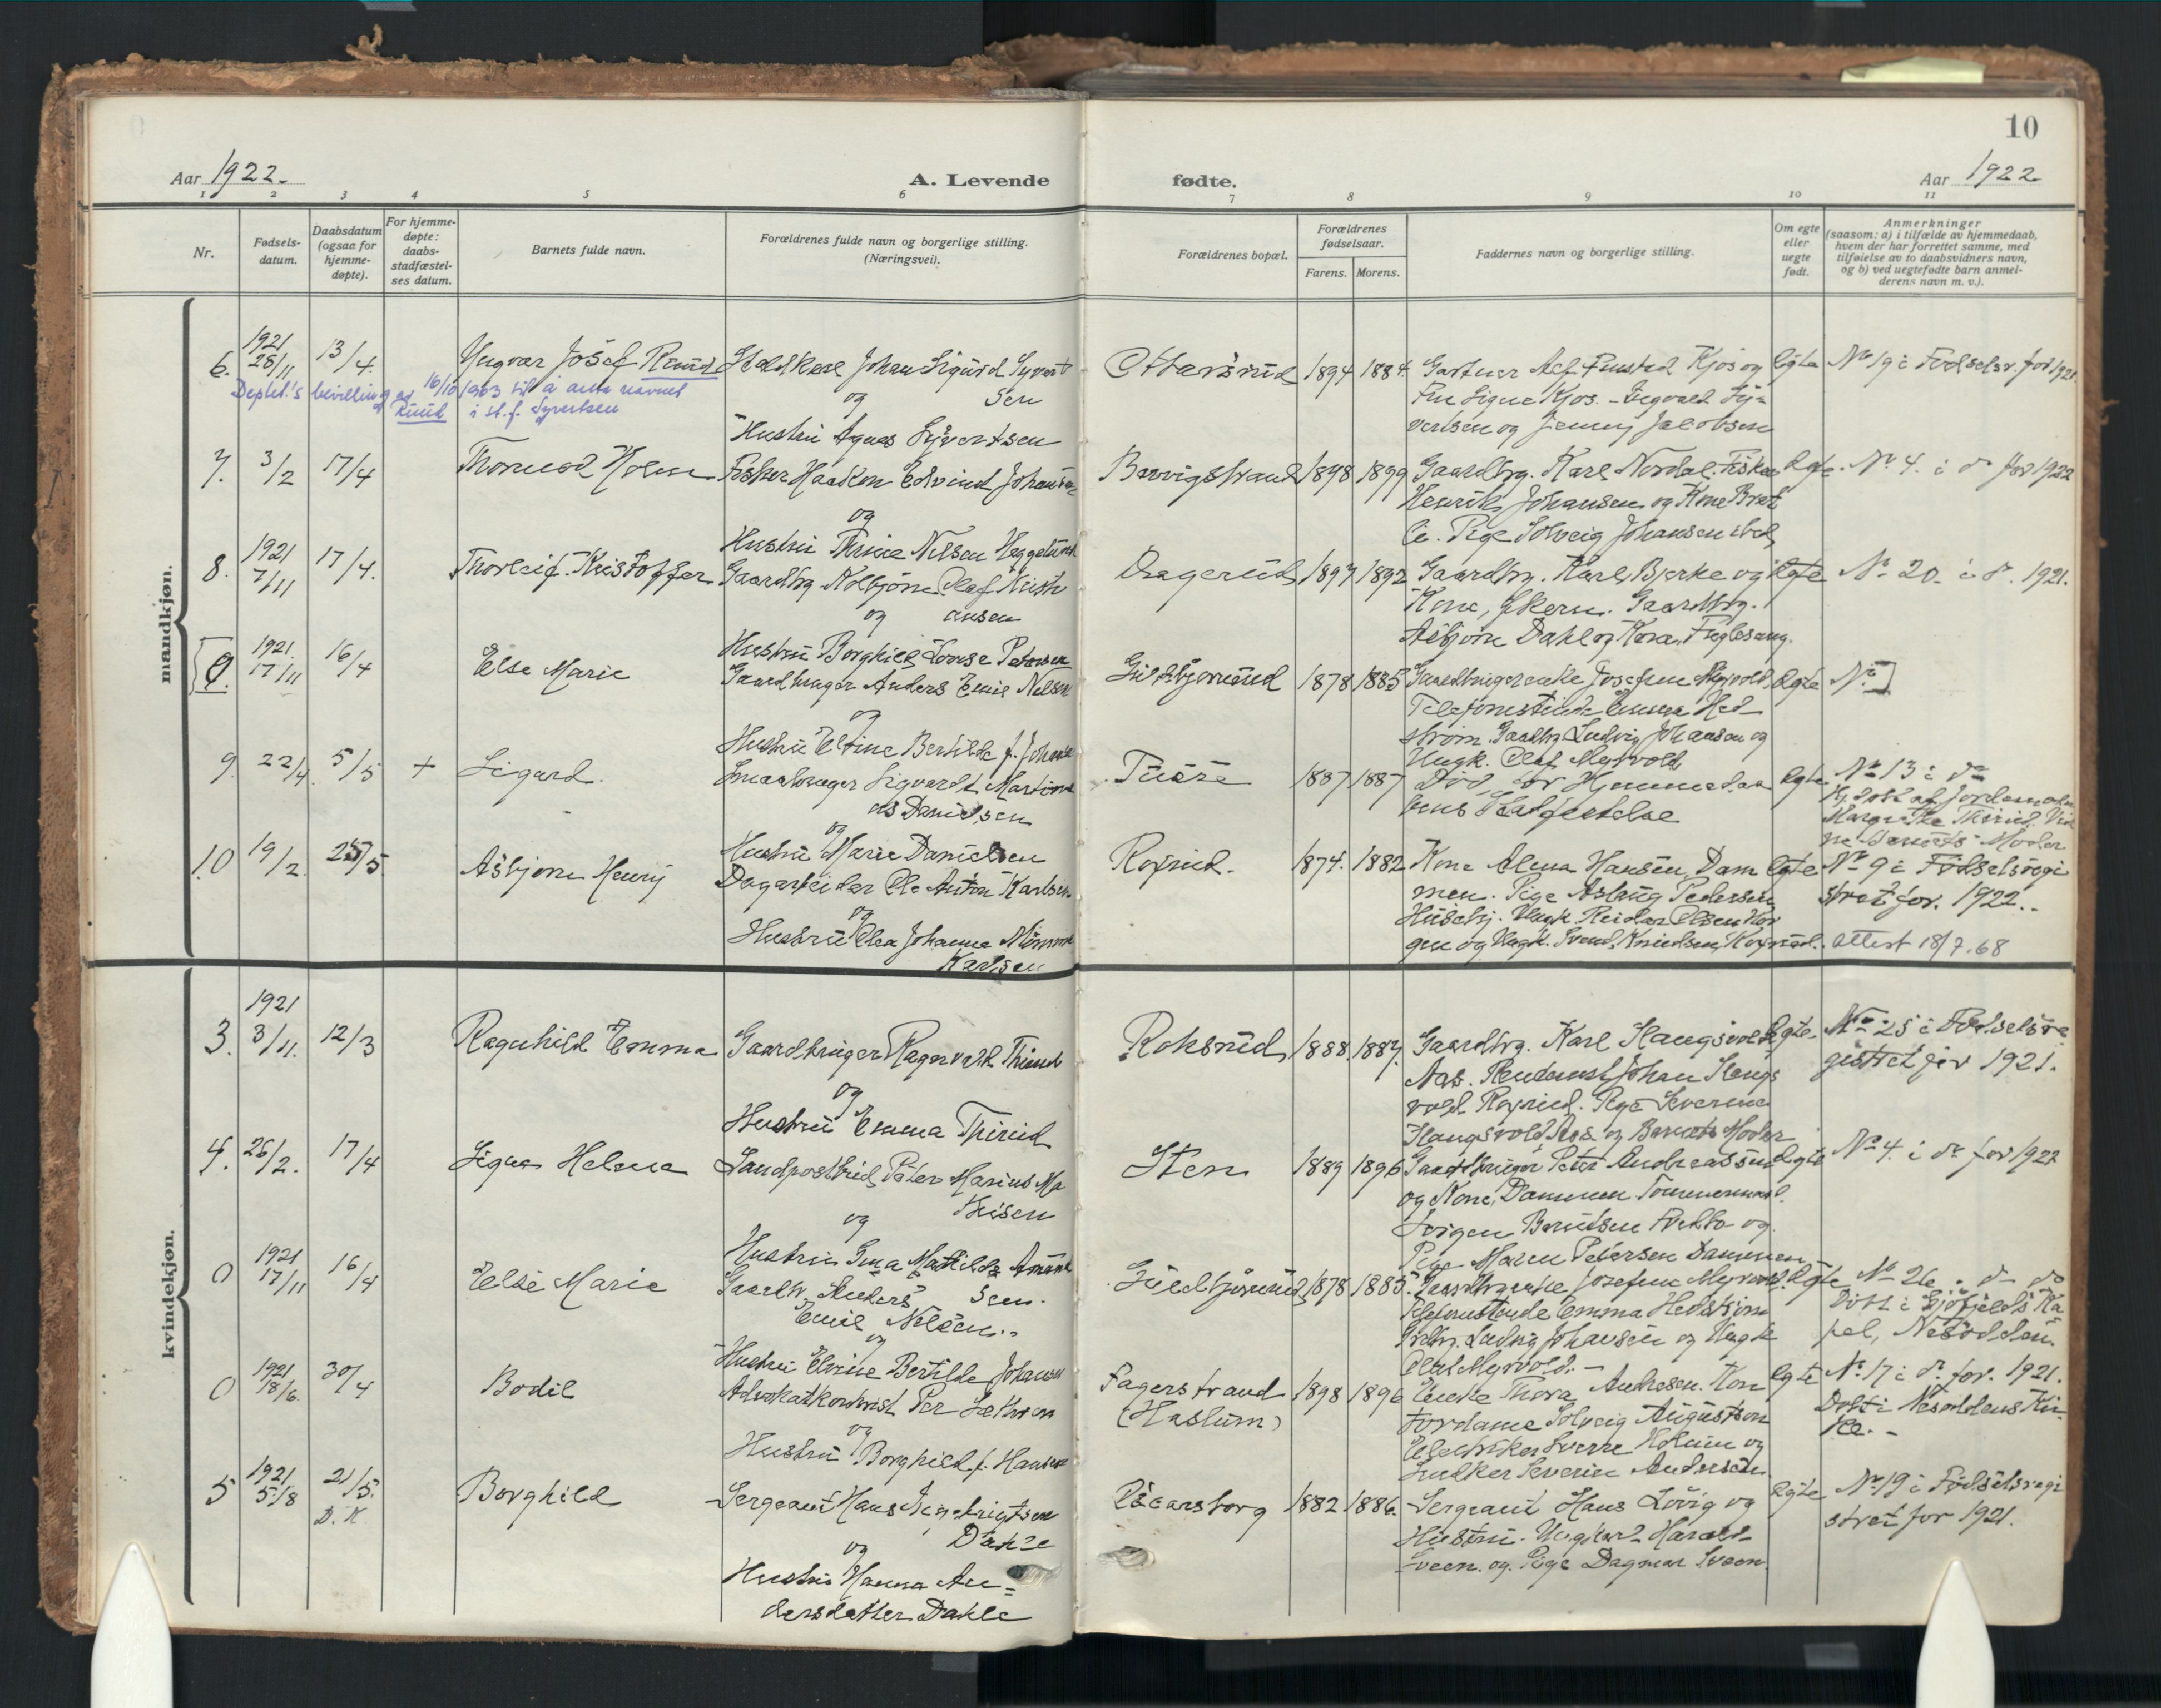 10
Aar 1922.
A. Levende
fødte.
Aar 1922
1 2 3 4 5 6 7 8 9 10 11
Nr.
Fødsels-
datum.
Daabsdatum
(ogsaa for
hjemme-
døpte).
For hjemme-
døpte:
daabs-
stadfæstel-
ses datum.
Barnets fulde navn.
Forældrenes fulde navn og borgerlige stilling.
(Næringsvei).
Forældrenes bopæl.
Forældrenes
fødselsaar.
Farens. Morens.
Faddernes navn og borgerlige stilling.
Om egte
eller
uegte
født.
Anmerkninger
(saasom: a) i tilfælde av hjemmedaab,
hvem der har forrettet samme, med
tilføielse av to daabsvidners navn,
og b) ved uegtefødte barn anmel-
derens navn m. v.).
mandkjøn.
6. 1921 28/11 13/4. Yngvar Josef Ruud
Johan Sigurd Syvert
og sen
Hustru Agnes Syvertsen
1894 1884.
Gartner Kjos og
Fru Signe Kjos. - Ingvald Sy=
vertsen og Jenny Jacobsen
Egte
No 19 i Fødselsr. for 1921.
Deptet's bevilling av 16/10 1963 til a anta navnet
Ruud i st. f. Syvertsen
7. 3/2 17/4 Thormod Holm
Fisker Haakon Edvind Johansen
og
Hustru Nilsen
1898 1899
Gaardbrg. Karl Nordal. Fisker
Henrik Johansen og Kone
Pige Solveig Johansen
Egte.
No 4. i do for 1922
8. 1921 7/11 17/4. Thorleif Kristoffer
Gaardbrg Kolbjørn Olaf Kristi
og ansen
Hustru Borghild Lovise Petersen
Dragerud 1897 1892
Gaardbrg. Karl Bjerke og
Kone, Gaardbrg.
Asbjørn Dahl og Kone, Fuglesang.
Egte
No 20 i do. 1921.
1921. 17/11 16/4 Else Marie
Gaardbruger Anders Emil Nilsen
og
Hustru Bertilde f. Johanse
1878 1885
Gaardbrugerenke Josefine Myrvold,
Telefonistinde Emma Hed
strøm Gaardbrg Ludvig Johansen og
Ungk. Olaf Myrvold
Egte
No
9. 22/4. 5/5 + Sigurd.
Smaabruger Sigvardt Martin
Danielsen
og
Hustru Marie Danielsen
1887 1887
Død før Hjemmedaa
bens Stadfestelse
Egte.
No 13 i do
Hj. døbt af Jordemoder
Margrethe Thirud. Vid
ne Barnets Moder
10 19/2. 25/5. Asbjørn Henry
Dagarbeider Ole Anton Karlsen
og
Hustru Olea Johanne
Karlsen
Roxrud. 1874. 1882
Kone Alma Hansen, Dam
men. Pige Aslaug Pedersen
Husebj. Ungk. Reidar Olsen
og Ungk. Svend Knudsen, Roxrud.
Egte
No 9 i Fødselsregi
stret for. 1922..
Attest 18/7.68
kvindekjøn.
3. 1921 3/11. 12/3 Ragnhild Emma
Gaardbruger Ragnvald Thirud
og
Hustru Emma Thirud
Roksrud 1888. 1887.
Gaardbrg. Karl Haugsvold
Aas. Johan Haugs
vold Roxrud. Pige Severine
Haugsvold Aas og Barnets Moder
Egte.
No 25 i Fødselsre
gistret for 1921.
4. 26/2. 17/4 Signe Helene
Landpostbud Peter Marius Ma
thisen
og
Hustru Matilde
Sten 1889 1896
Gaardbruger Peter Andreassen
og Kone, Dammen. Tømmermand
Jørgen Berntsen og
Pige Maren Petersen Dammen
Egte
No 4. i do for 1922
0 1921 17/11 16/4 Else Marie
Gaardbr. Anders
Emil Nilsen..
og
Hustru Bertilde Johansen
1878 1885.
Gaardbrgenke Josefine Myrvold.
Telefonistinde Emma Hedstrøm
Grdbrg. Ludvig Johansen og Ungk
Olaf Myrvold. -
Egte
No 26 i do do
Døbt i Gjøfjelds Ka
pel, Nesodden.
0 1921 18/6. 30/4 Bodil
Per
og
Hustru Borghild f. Hansen
Fagerstrand
(Haslum)
1898 1896
Enke Thora Andresen. Kon
tordame Solveig Augustson
Elektriker Sverre Holum og
Snedker Severin Andersen
Egte
No 17 i do for. 1921.
Døbt i Nesoddens Kir
ke. -
5 1921 5/8 21/5. D. K. Borghild
Sergeant Hans Ingebrigtsen
Dahle
og
Hustru Hanna An=
dersdatter Dahle
Oscarsborg 1882 1886.
Sergeant Hans Løvig og
Hustru. Ungkarl Harald
Sveen. og Pige Dagmar Sveen.
Egte
No 19 i Fødselsregi
stret for 1921.